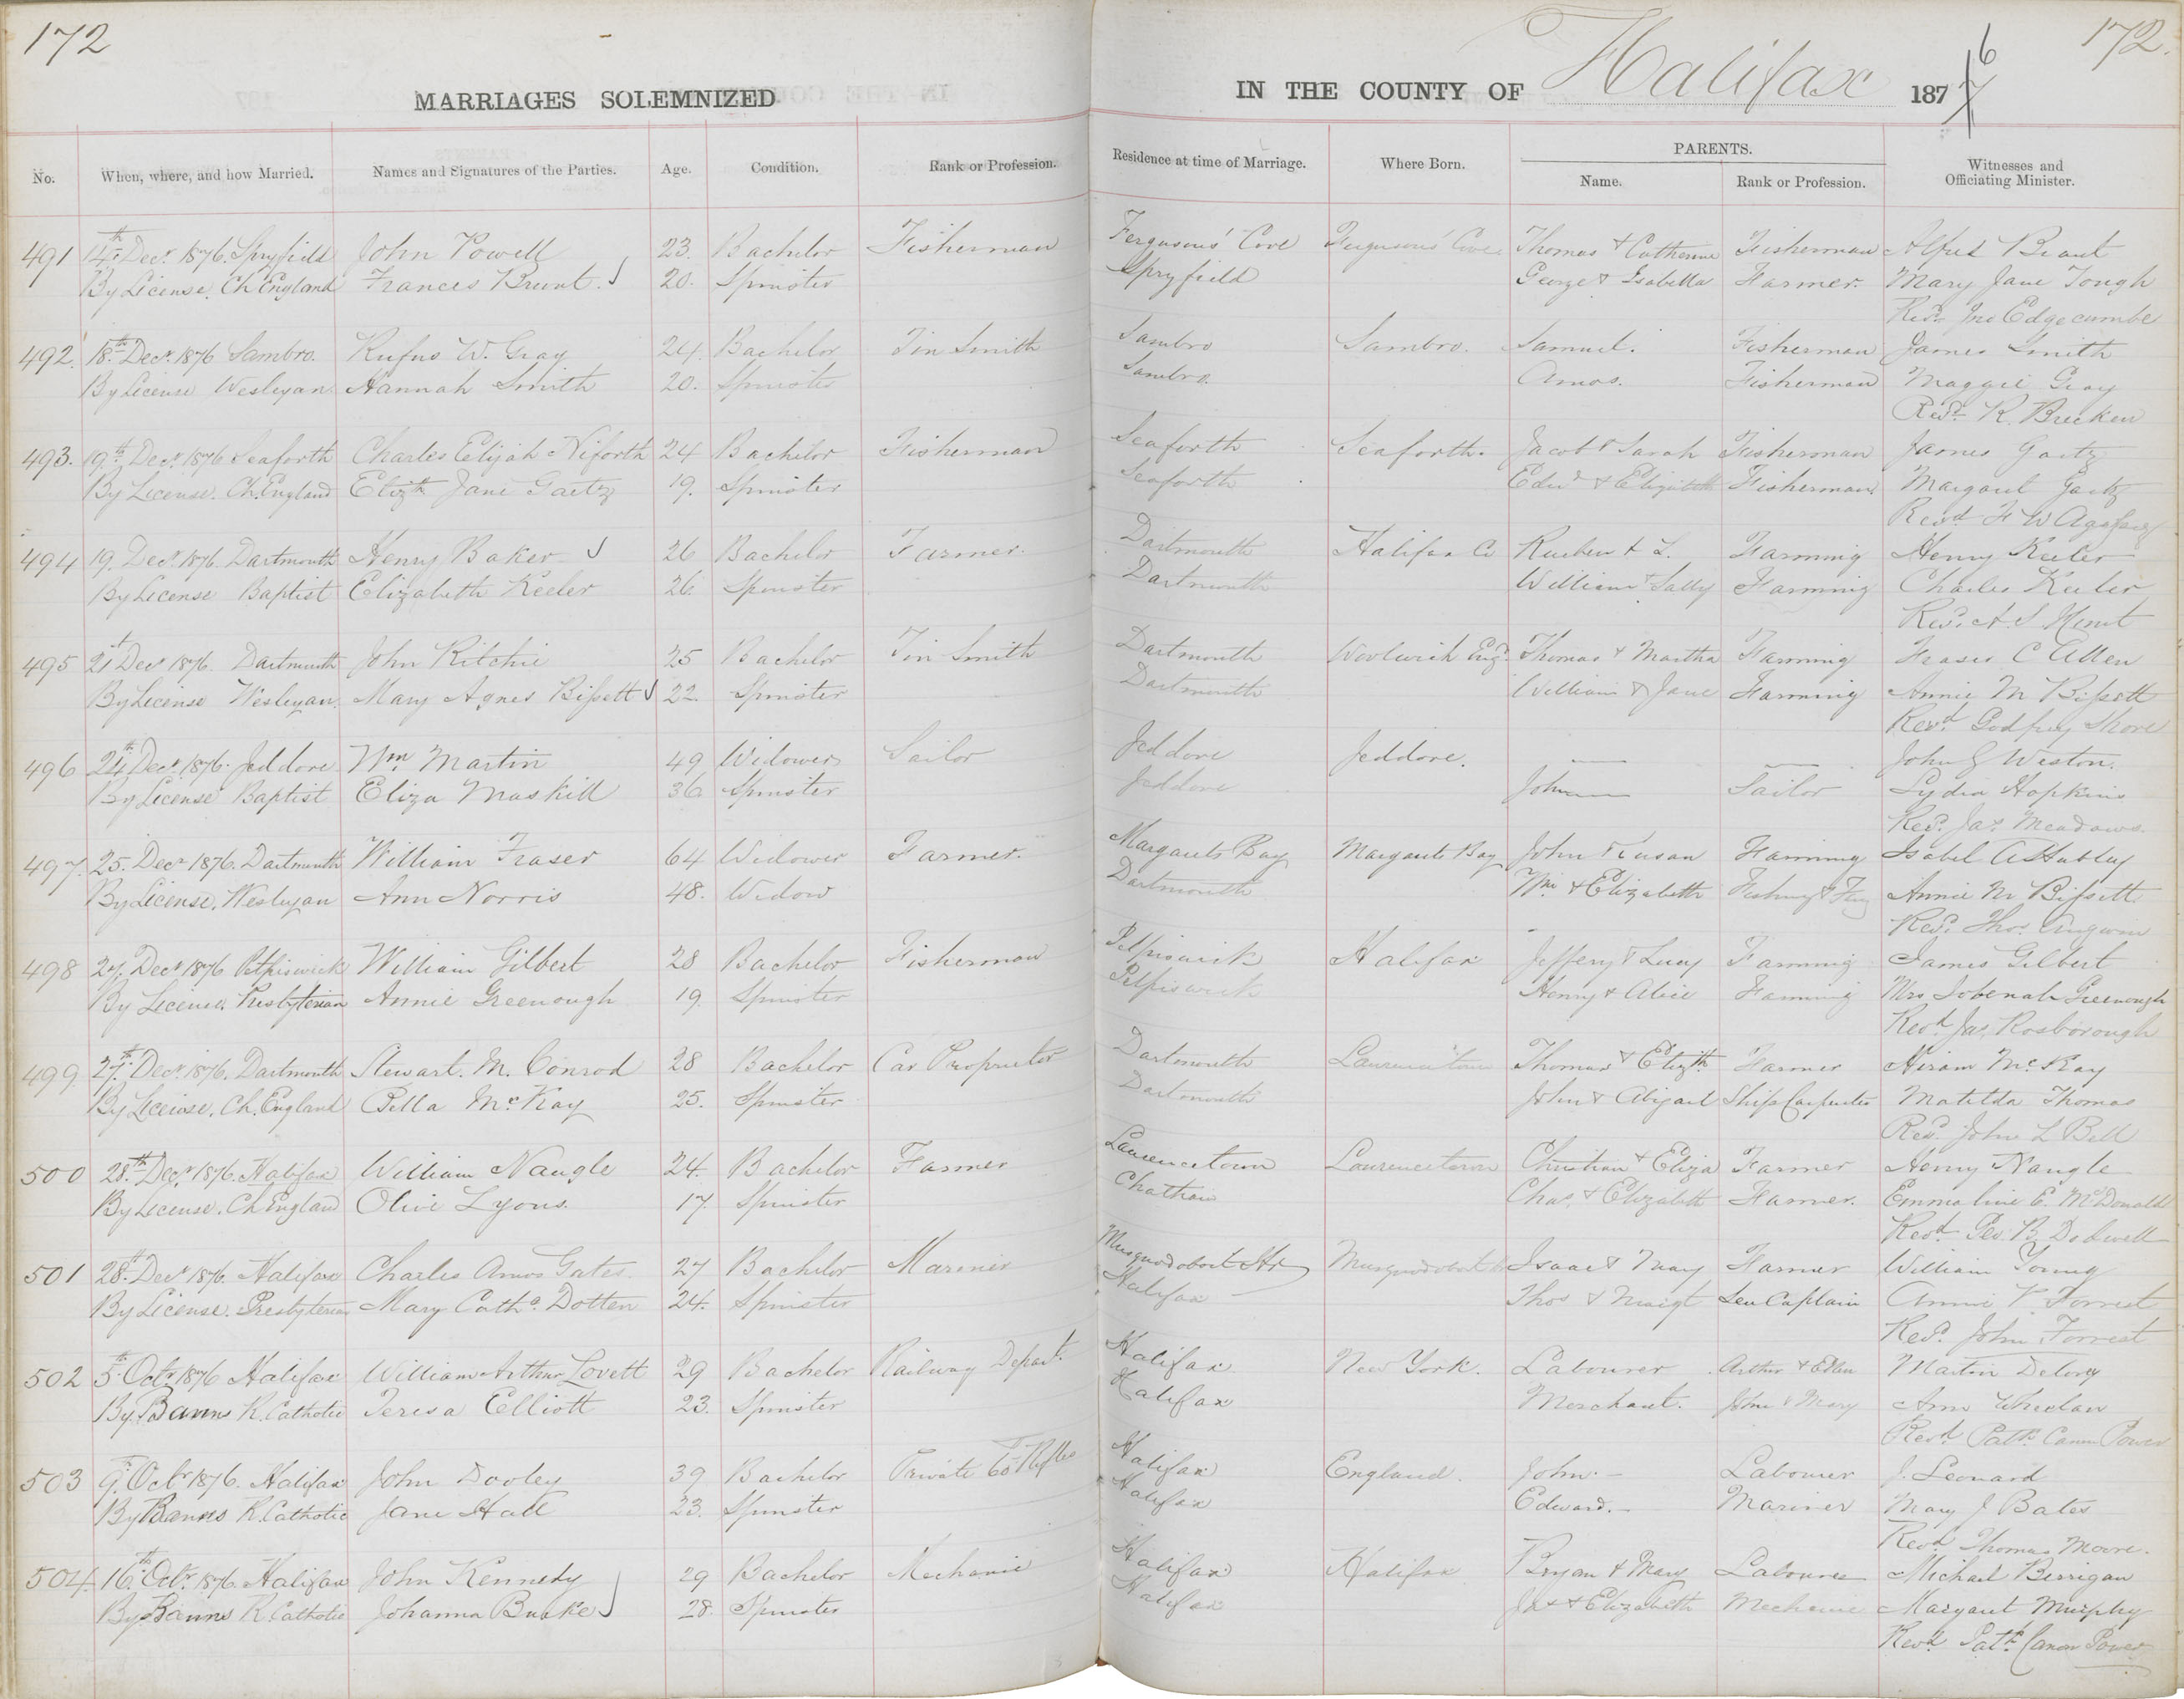 172
172.
MARRIAGES SOLEMNIZED
IN THE COUNTY OF Halifax 1876
No. When, where, and how Married. Names and Signatures of the Parties. Age. Condition. Rank or Profession. Residence at time of Marriage. Where Born. PARENTS. Name. Rank or Profession. Witnesses and Officiating Minister.
491 14th Decr. 1876. Spryfield John Powell 23. Bachelor Fisherman Fergusons' Cove Fergusons' Cove Thomas & Catherine Fisherman Alfred Brunt
By License. Ch England Frances Brunt. 20. Spinster Spryfield George & Isabella Farmer. Mary Jane Tough
Revd. Jno Edgecumbe
492. 18th Decr. 1876 Sambro. Rufus W. Gray 24. Bachelor Tin Smith Sambro Sambro. Samuel. Fisherman James Smith
By License Wesleyan Hannah Smith 20. Spinster Sambro. Amos. Fisherman Maggie Gray
Revd. R. Brecken
493. 19th Decr. 1876 Seaforth Charles Elijah Niforth 24 Bachelor Fisherman Seaforth Seaforth. Jacob & Sarah Fisherman James Gaetz
By License. Ch. England Elizth Jane Gaetz 19. Spinster Seaforth Edwd & Elizabeth Fisherman Margaret Gaetz
Revd F W
494 19. Decr. 1876. Dartmouth Henry Baker 26 Bachelor Farmer. Dartmouth Halifax Co Reuben & L. Farming Henry Keeler
By License Baptist Elizabeth Keeler 26. Spinster Dartmouth William & Sally Farming Charles Keeler
Revd. A. S. Hunt
495 21st Decr 1876. Dartmouth John Ritchie 25 Bachelor Tin Smith Dartmouth Woolwich Engd. Thomas & Martha Farming Fraser C Allen
By License Wesleyan. Mary Agnes Bissett 22. Spinster Dartmouth William & Jane Farming Annie M Bissett
Revd Godfrey Shore
496 24th Decr. 1876. Jeddore Wm Martin 49 Widower Sailor Jeddore Jeddore. — — John G Weston.
By License Baptist Eliza Maskill 36 Spinster Jeddore John — Sailor Lydia Hopkins
Revd. Jas. Meadows.
497. 25. Decr 1876. Dartmouth William Fraser 64 Widower Farmer. Margarets Bay Margarets Bay John Farming Isabel A Hubley
By License. Wesleyan Ann Norris 48. Widow Dartmouth Wm. & Elizabeth Annie M Bissett
Revd. Thos. Angwin
498 27. Decr 1876 Petpiswick William Gilbert 28 Bachelor Fisherman Petpiswick Halifax Jeffery & Lucy Farming James Gilbert
By License. Presbyterian Annie Greenough 19. Spinster Petpiswick Henry & Alice Farming Mrs Greenough
Revd. Jas. Rosborough
499. 27th Decr. 1876. Dartmouth Stewart. M. Conrod 28 Bachelor Car Proprietor Dartmouth Laurencetown Thomas & Elizth Farmer Hiram McKay
By License. Ch. England Bella McKay 25. Spinster Dartmouth John & Abigail Ship Carpenter Matilda Thomas
Revd. John L Bell
500 28th Decr. 1876. Halifax William Naugle 24. Bachelor Farmer Laurencetown Laurencetown Christian & Eliza Farmer Henry Naugle
By License. Ch England Olive Lyons. 17. Spinster Chatham Chas. & Elizabeth Farmer. Emmaline E. McDonald
Revd. Geo. B. Dodwell
501 28th Decr. 1876. Halifax Charles Amos Gates. 27 Bachelor Mariner Musquodoboit Hr Musquodoboit Isaac & Mary Farmer William Young
By License. Presbyterian Mary Cathe. Dotten 24. Spinster Halifax Thos & Margt Sea Captain Annie Forrest
Revd. John Forrest
502 5th Octr 1876 Halifax William Arthur Lovett 29 Bachelor Railway Depart. Halifax New York. Labourer Arthur & Ellen Martin Delory
By Banns R. Catholic Teresa Elliott 23. Spinster Halifax Merchant. John & Mary Ann Whelan
Revd Patk. Canon Power
503 9th. Octr 1876. Halifax John Dooley 39 Bachelor Private 60th Rifles Halifax England. John. Labourer J. Leonard
By Banns R. Catholic Jane Hall 23. Spinster Halifax Edward. Mariner Mary J Bates
Revd. Thomas Moore.
504. 16th. Octr. 1876. Halifax John Kennedy 29 Bachelor Mechanic Halifax Halifax Bryan & Mary Labourer Michael Berrigan
By Banns R. Catholic Johanna Burke 28. Spinster Halifax Jas & Elizabeth Mechanic Margaret Murphy
Revd. Patk. Canon Power